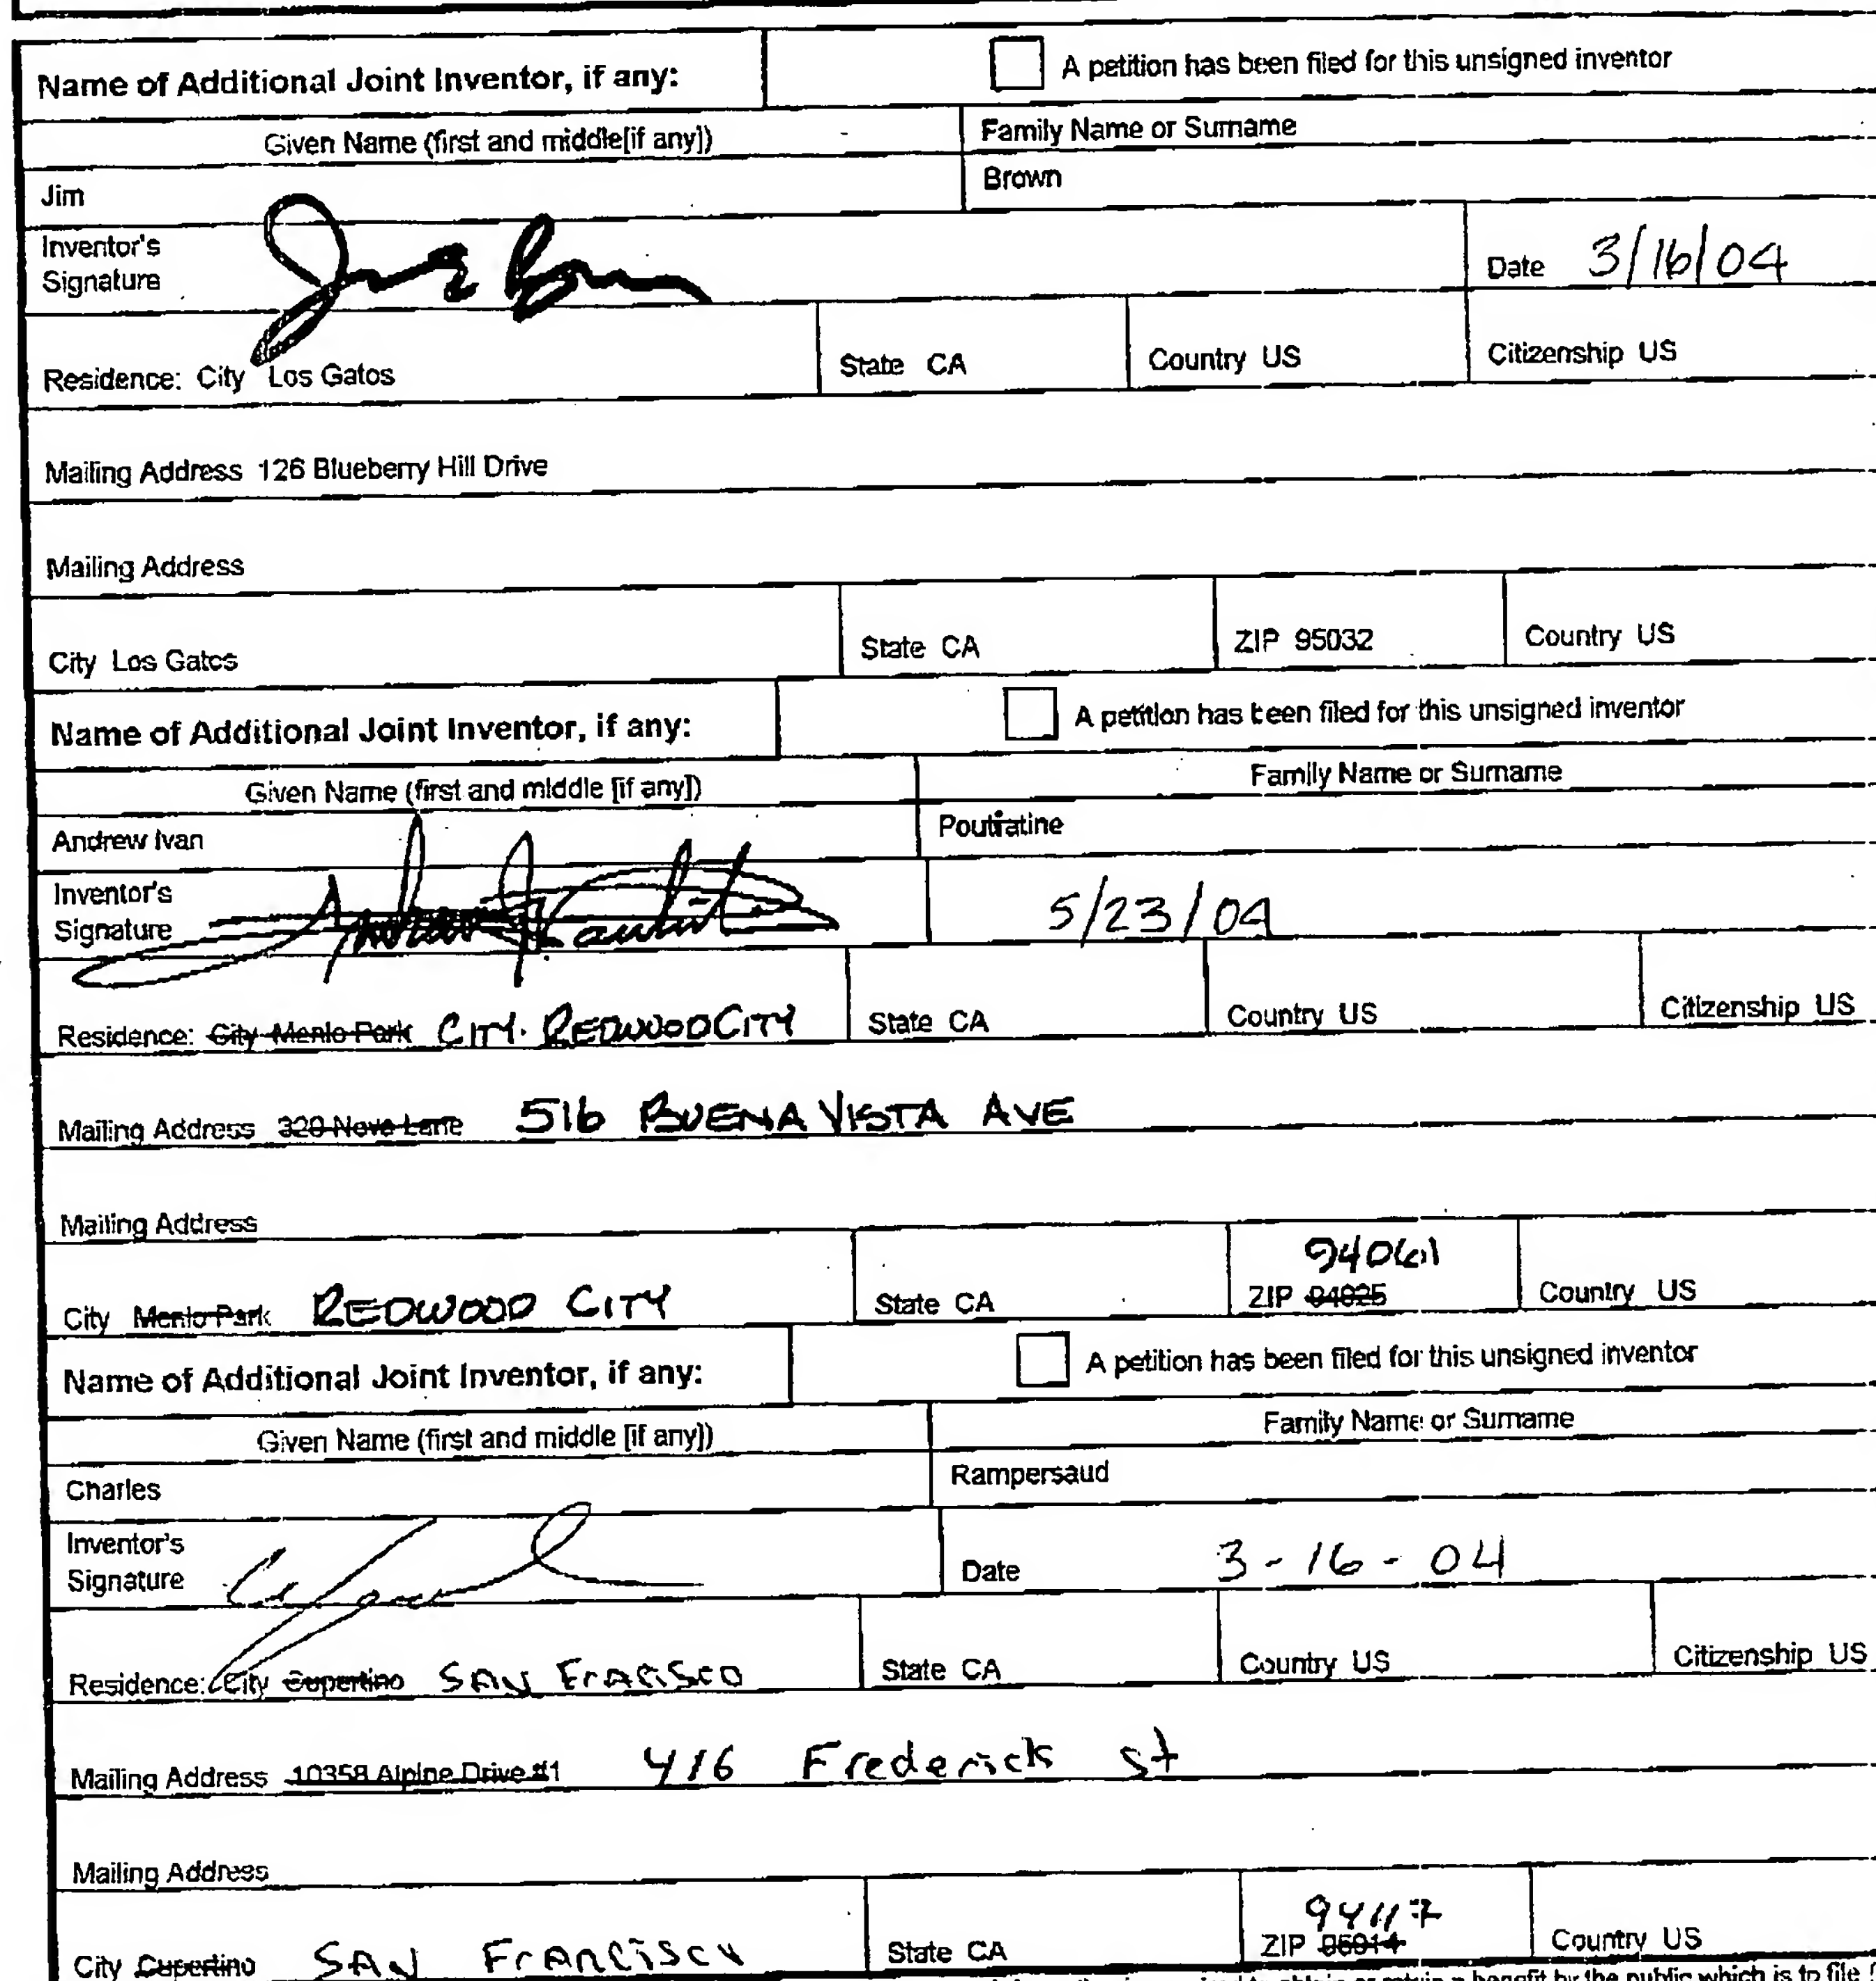 Name of Additional Joint Inventor, if any: A petition has been filed for this unsigned inventor
Given Name (first and middle[if any]) Family Name or Surname
Jim Brown
Inventor's
Signature Date 3/16/04
Residence: City Los Gatos State CA Country US Citizenship US
Mailing Address 126 Blueberry Hill Drive
Mailing Address
City Los Gatos State CA ZIP 95032 Country US
Name of Additional Joint Inventor, if any: A petition has been filed for this unsigned inventor
Given Name (first and middle [if any]) Family Name or Surname
Andrew Ivan Poutiatine
Inventor's
Signature 5/23/04
Residence: City Menlo Park CITY. REDWOOD CITY State CA Country US Citizenship US
Mailing Address 516 BUENA VISTA AVE
Mailing Address
94061
City Menlo Park REDWOOD CITY State CA ZIP 94025 Country US
Name of Additional Joint Inventor, if any: A petition has been filed for this unsigned inventor
Given Name (first and middle [if any]) Family Name or Surname
Charles Rampersaud
Inventor's
Signature Date 3-16-04
Residence: City Cupertino SAN State CA Country US Citizenship US
Mailing Address 10358 Alpine Drive #1 416 Frederick st
Mailing Address
94117
City Cupertino SAN FRANCISCO State CA ZIP 95014 Country US
benefit by the public which is to file